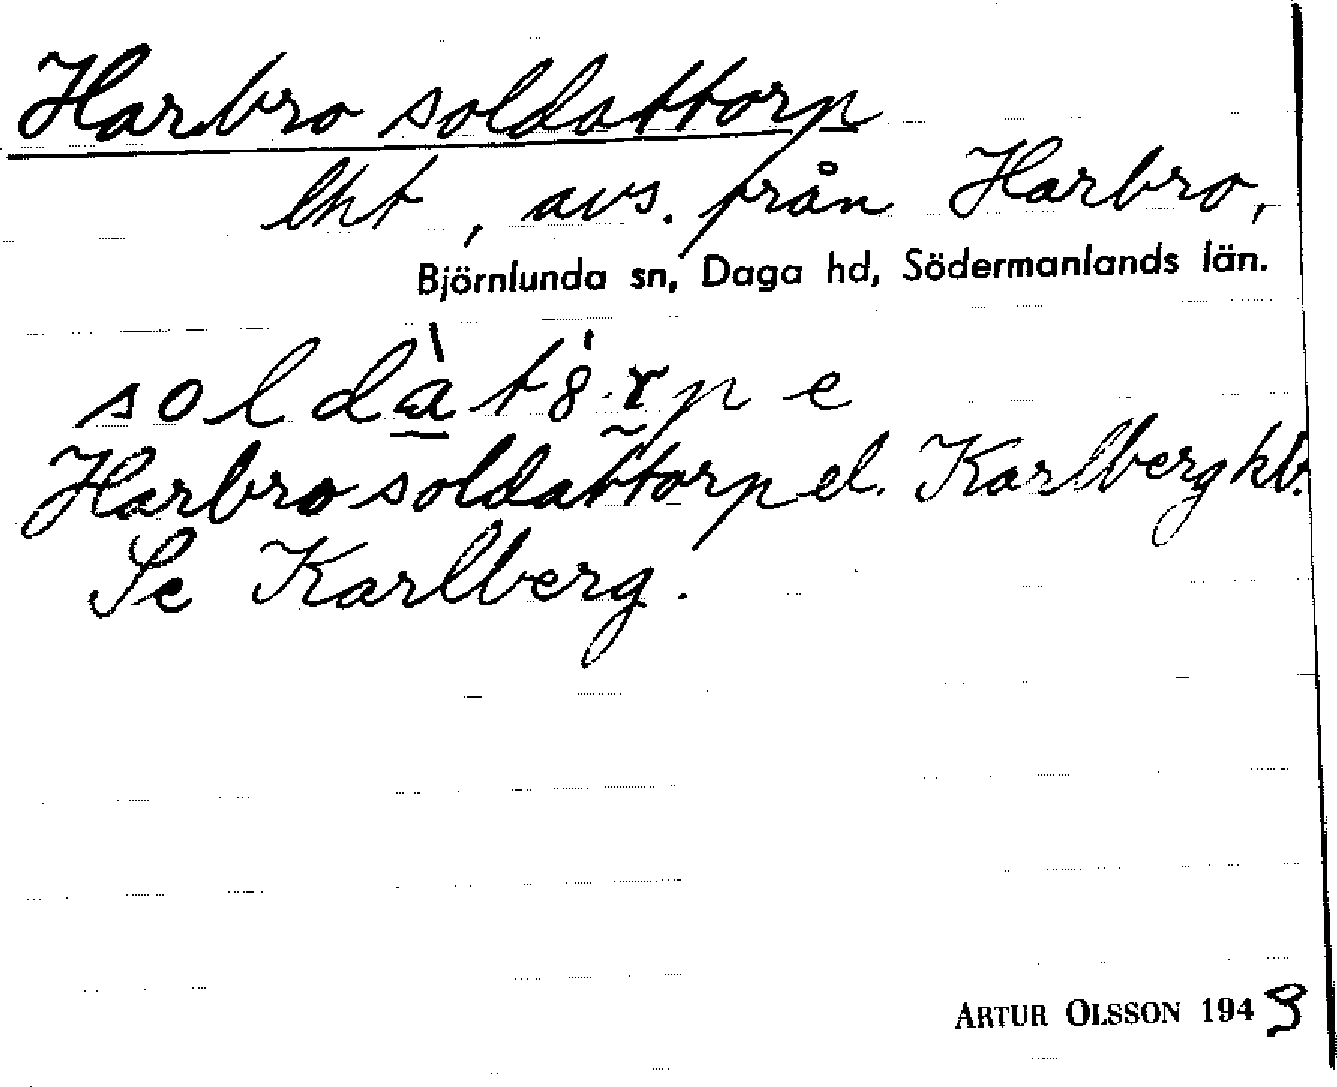 Harbro soldattorp
lht, avs. från Harbro,
Björnlunda sn, Daga hd, Södermanlands län.
soldàt8rpe
Harbro soldattorp el. Karlberg kb.
Se Karlberg.
ARTUR OLSSON 1943